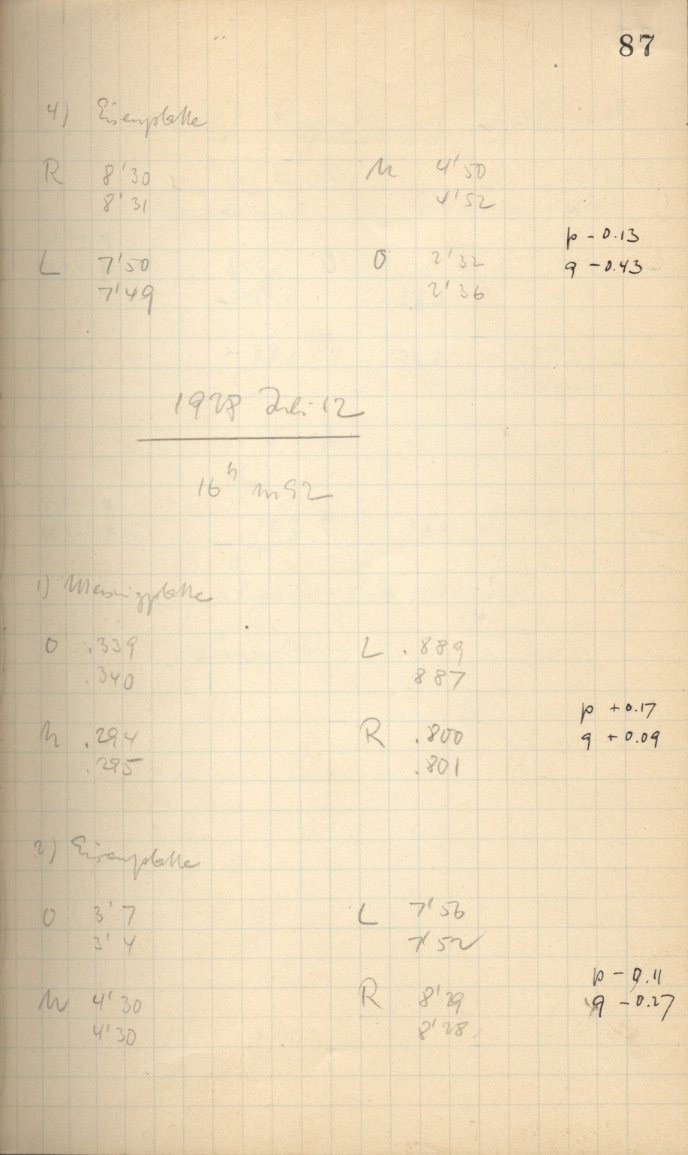 87
4) Eisenplatte
R 8'30 U 4'50
8'31 4'52
p - 0.13
L 7'50 O 2'32 q - 0.43
7'49 2'36
1928 Juli 12
16h m92
1) Messingplatte
O .339 L .889
.340 887
p + 0.17
U .294 R .800 q + 0.09
.295 .801
2) Eisenplatte
O 3'7 L 7'56
3'4 7'52
p - 0.11
U 4'30 R 8'29 q - 0.27
4'30 8'28